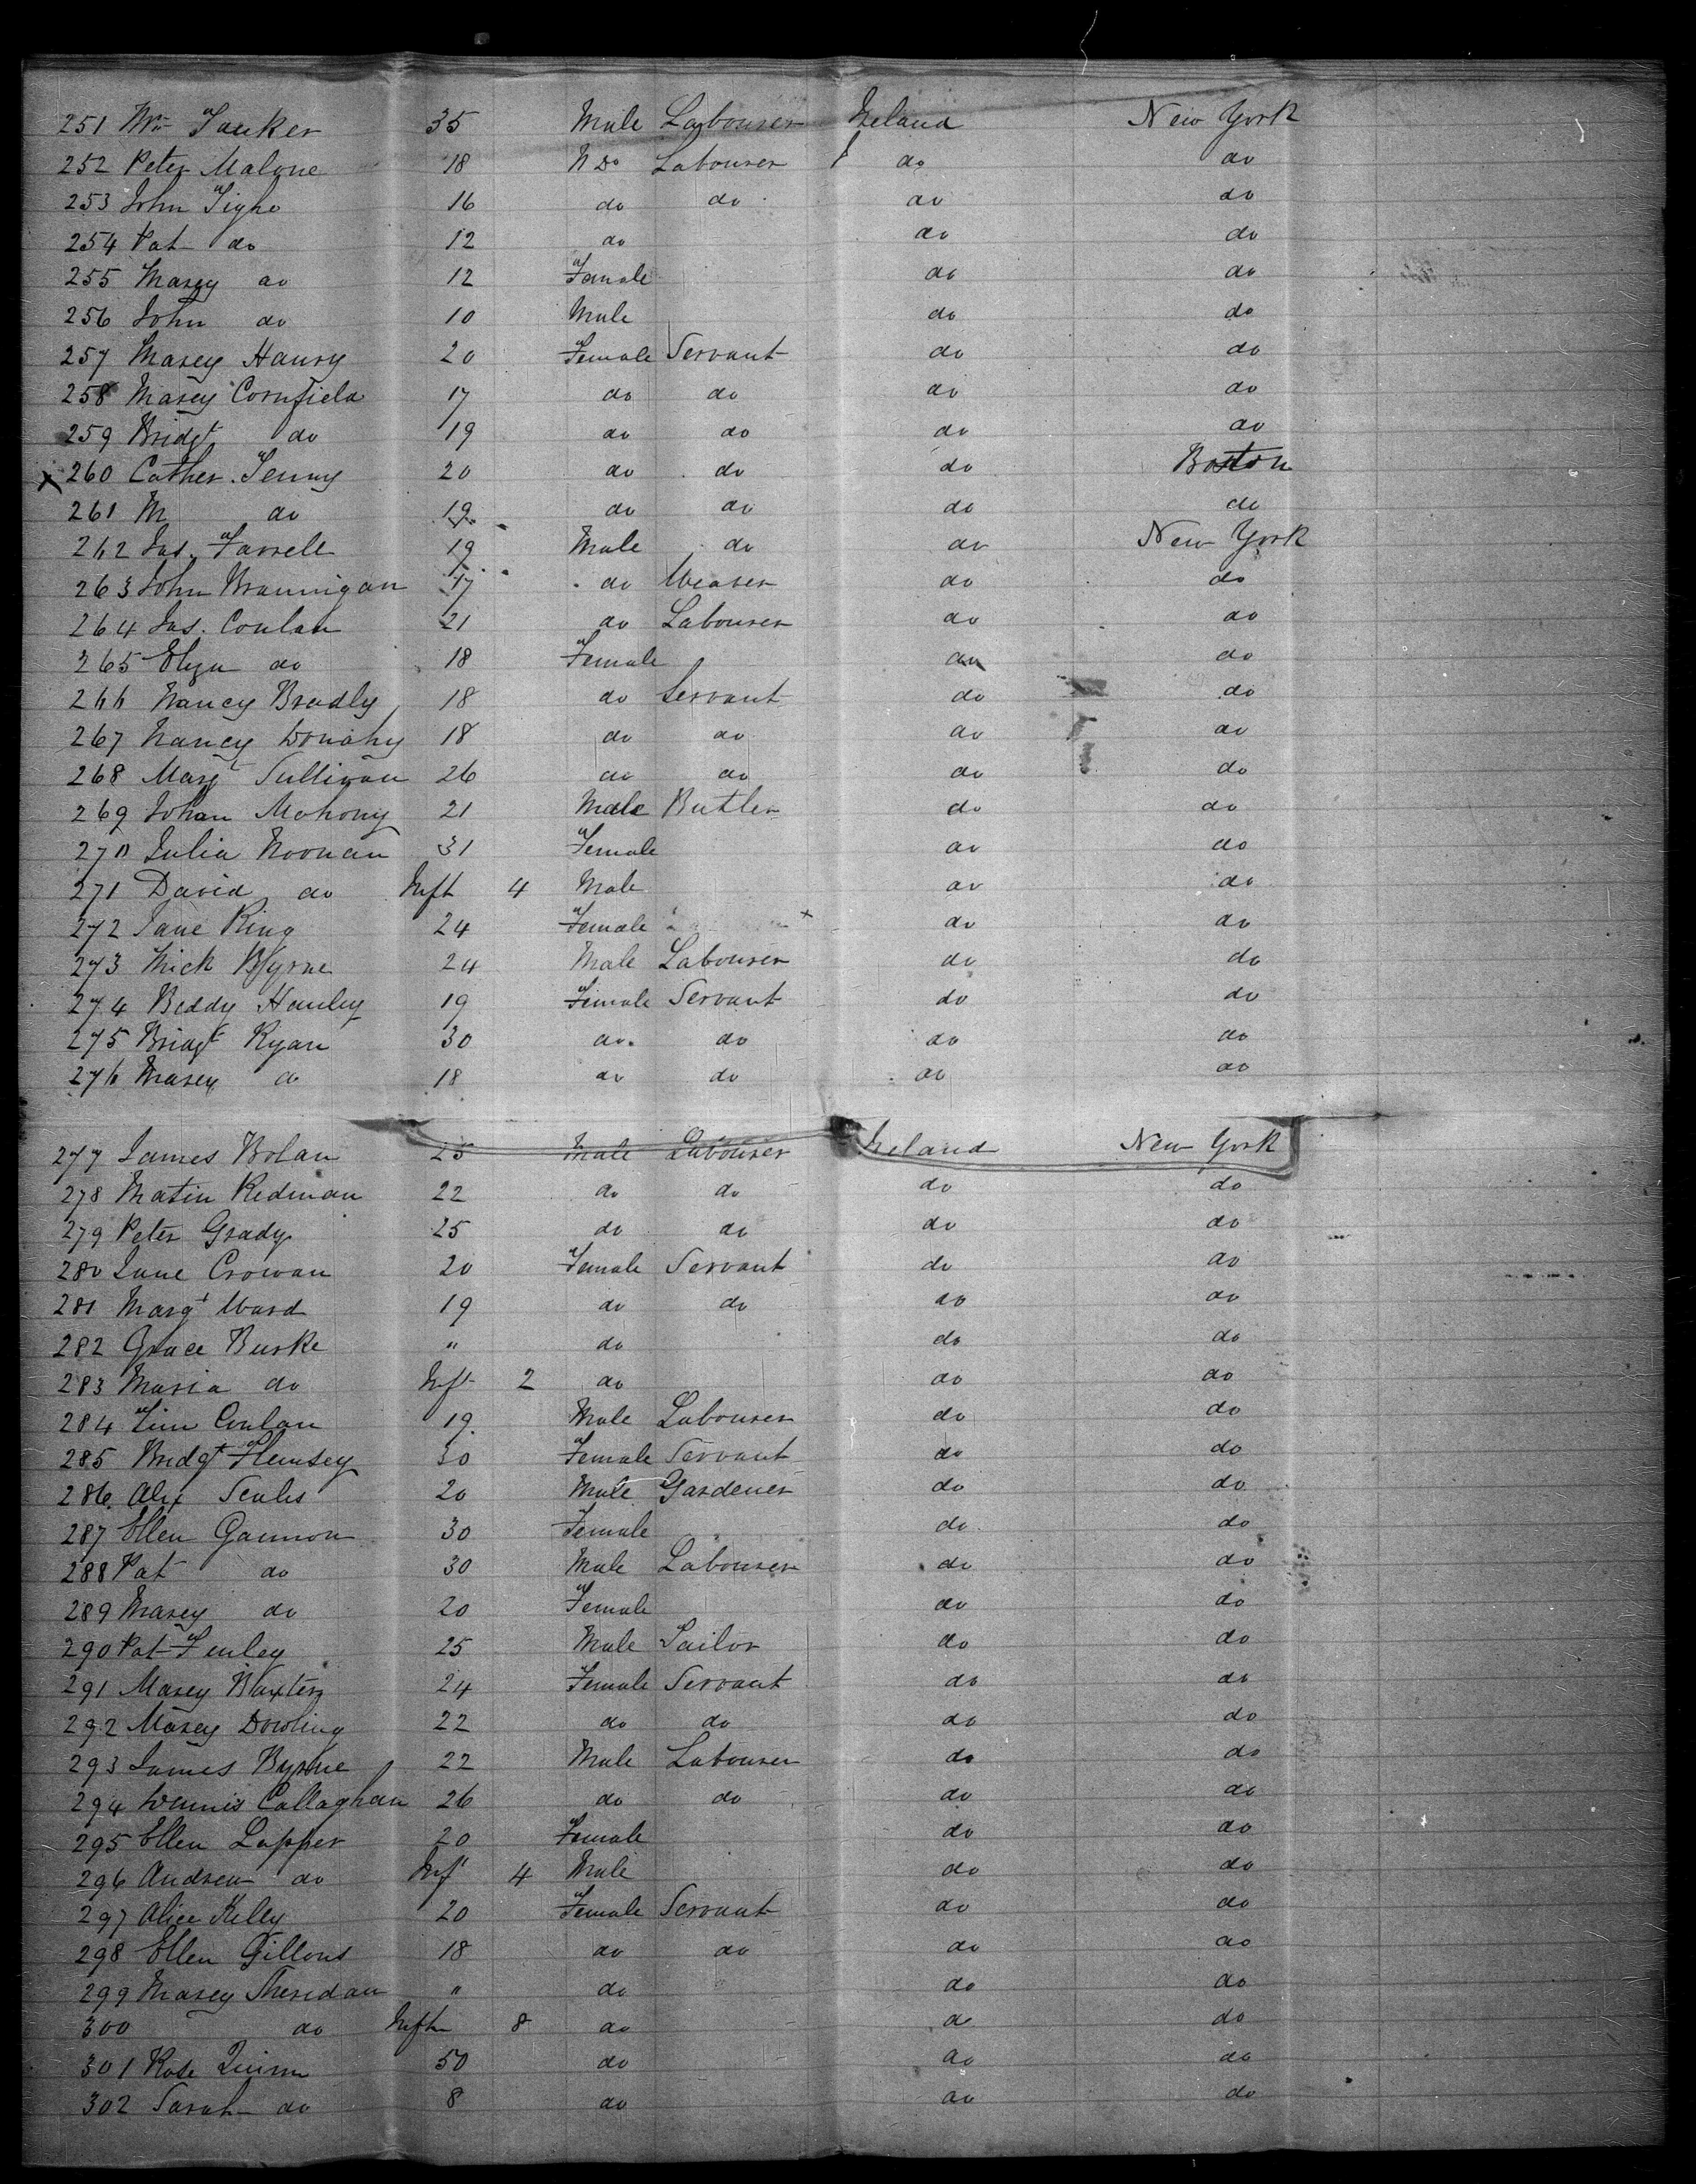 251 Wm Tauker 35 Male Labourer Ireland New York
252 Peter Malone 18 Do Labourer do do
253 John Tighe 16 do do do do
254 Pat do 12 do do do
255 Marey do 12 Female do do
256 John do 10 Male do do
257 Marey Haury 20 Female Servant do do
258 Marey Cornfield 17 do do do do
259 Bridgt do 19 do do do do
x 260 Cather. Fenny 20 do do do Boston
261 M do 19 do do do do
262 Jas. Farrell 19 Male do do New York
263 John Brannigan 17 do Weaver do do
264 Jas. Conlan 21 do Labourer do do
265 Eliza do 18 Female do do
266 Nancy Bradly 18 do Servant do do
267 Nancy Donohy 18 do do do do
268 Margt Sullivan 26 do do do do
269 Johan Mahony 21 Male Butler do do
270 Julia Noonan 31 Female do do
271 David do Inft 4 Male do do
272 Jane King 24 Female do do
273 Mick Byrne 24 Male Labourer do do
274 Beddy Hanley 19 Female Servant do do
275 Bridgt Ryan 30 do do do do
276 Marey do 18 do do do do
277 James Bolan 25 Male Labourer Ireland New York
278 Matin Redman 22 do do do do
279 Peter Grady 25 do do do do
280 Jane Crowan 20 Female Servant do do
281 Margt Ward 19 do do do do
282 Grace Burke " do do do
283 Maria do Inft 2 do do do
284 Tim Conlan 19 Male Labourer do do
285 Bridgt Flemsey 30 Female Servant do do
286 Alex Scales 20 Male Gardener do do
287 Ellen Gannon 30 Female do do
288 Pat do 30 Male Labourer do do
289 Marey do 20 Female do do
290 Pat Fenley 25 Male Tailor do do
291 Marey Baxter 24 Female Servant do do
292 Marey Dowling 22 do do do do
293 James Byrne 22 Male Labourer do do
294 Dennis Callaghan 26 do do do do
295 Ellen Lapper 20 Female do do
296 Andrew do Inft 4 Male do do
297 Alice Kelly 20 Female Servant do do
298 Ellen Gillons 18 do do do do
299 Marey Sheridan " do do do
300 do Inft 8 do do do
301 Rose Quinn 50 do do do
302 Sarah do 8 do do do